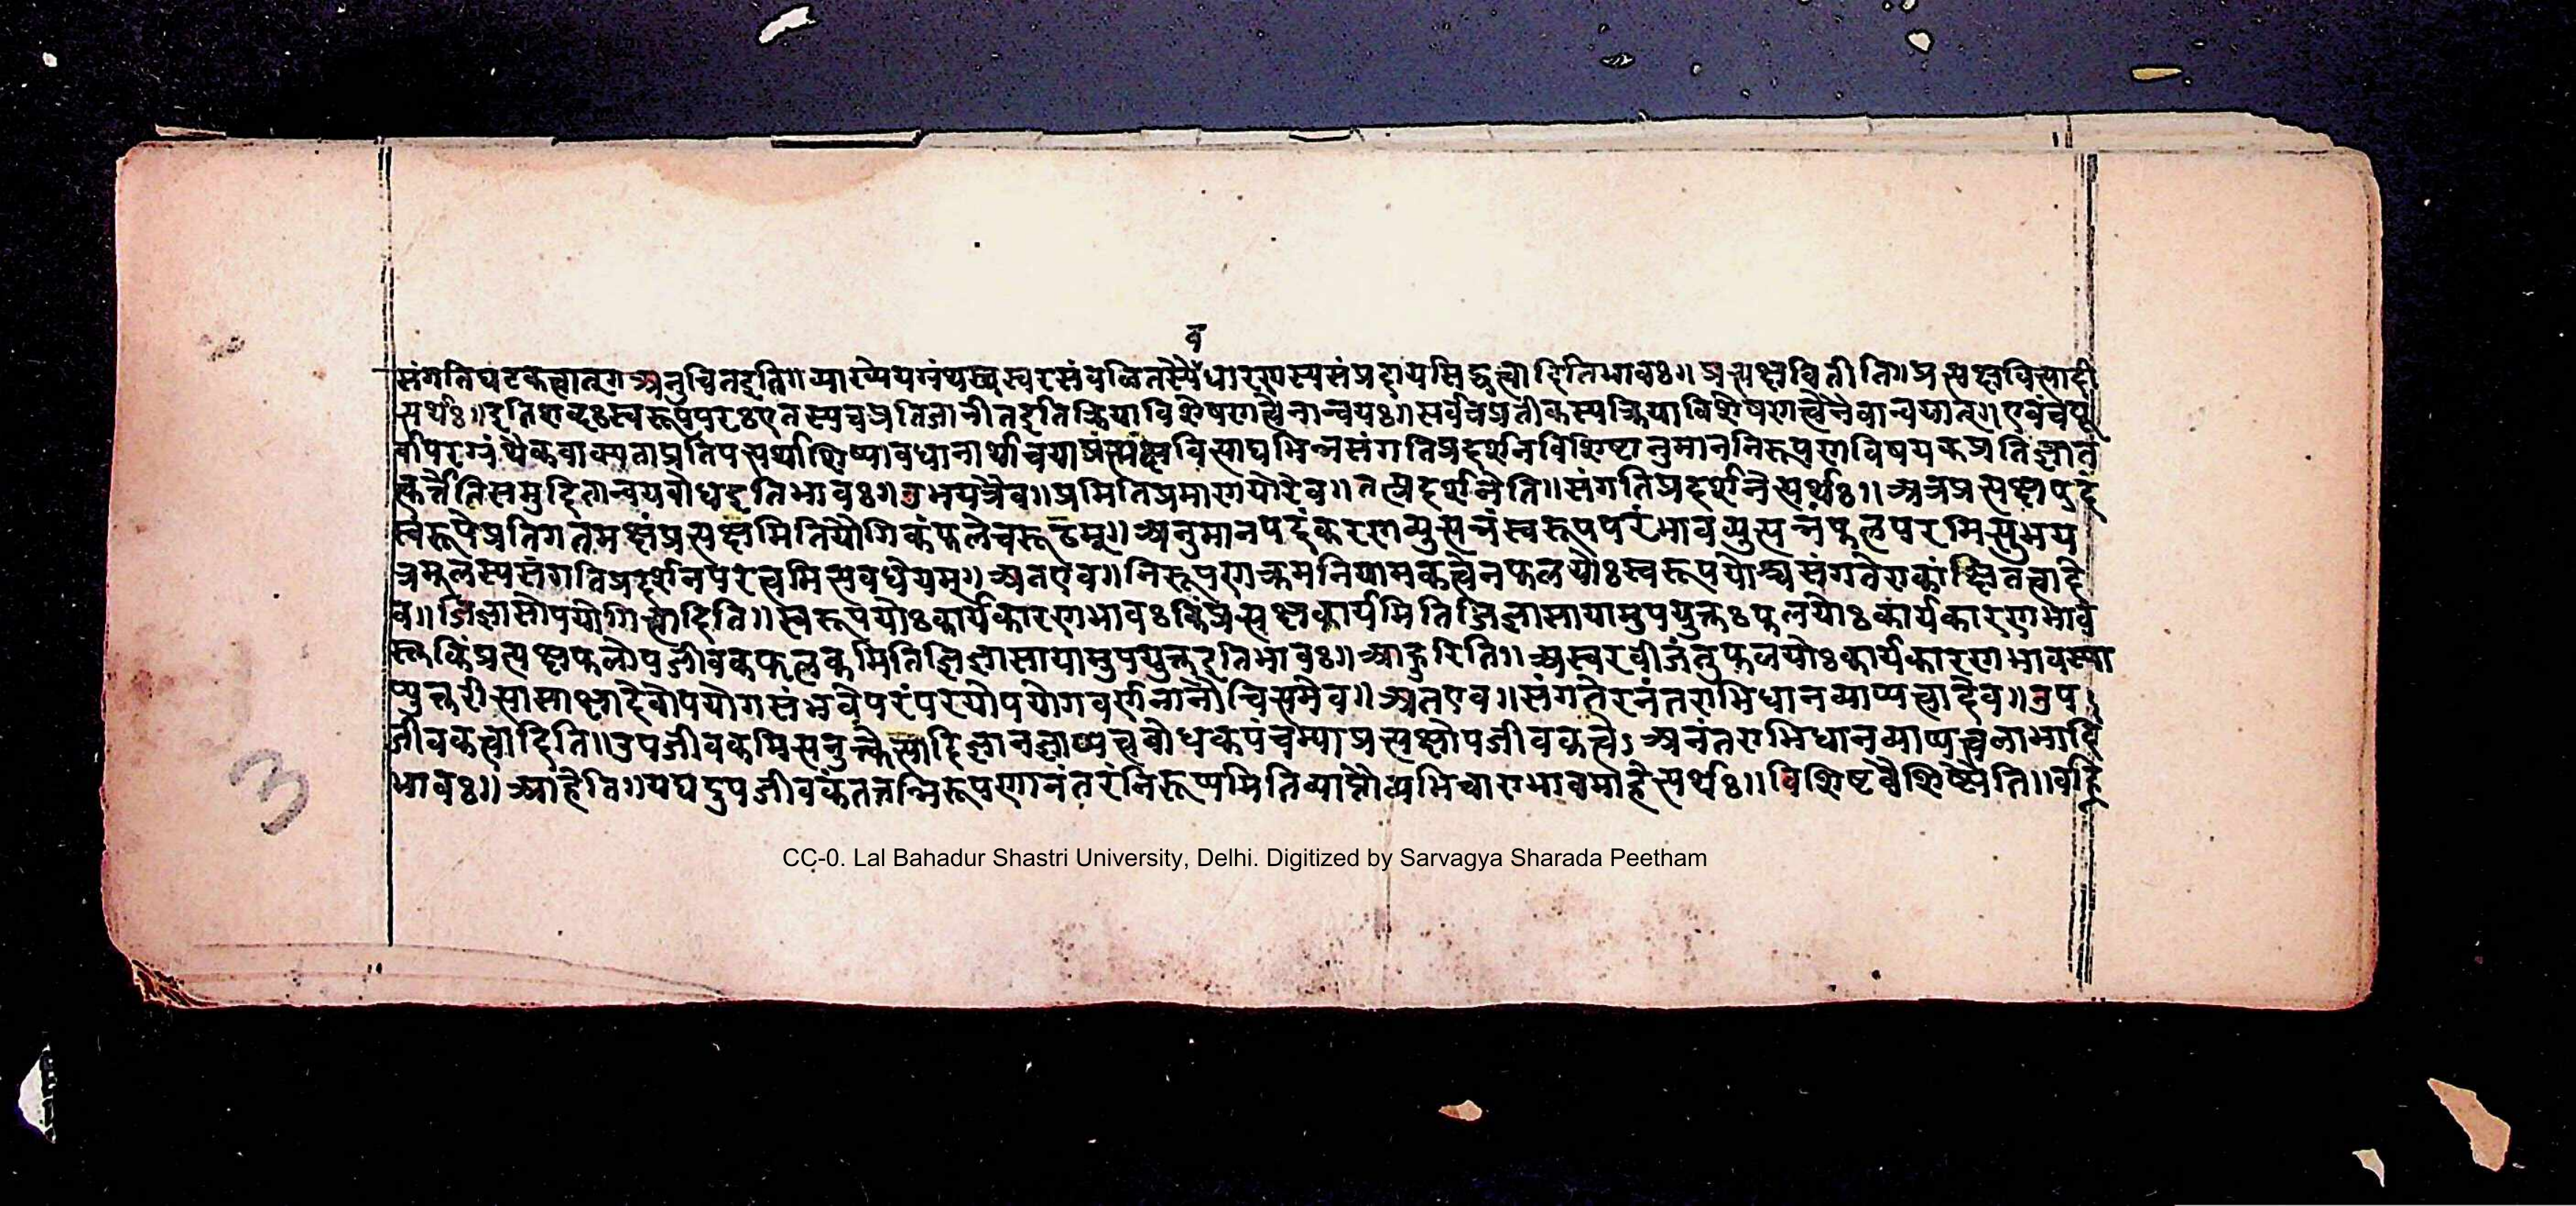 व
संगतिघटकत्वात्॥अनुचितइति॥व्याख्येयग्रंथस्वरससंवलितस्यैधारणस्यसंप्रदायसिद्धत्वादितिभावः॥प्रत्यक्षेतीति॥प्रत्यक्षेत्यादी
त्यर्थः॥इतिशब्दःस्वरूपपरःएतस्यचप्रतिजानीतइतिक्रियाविशेषणत्वेनान्वयः॥सर्वत्रप्रतीकस्यक्रियाविशेषणत्वेनैवान्वयात्॥एवंचपू
र्वापरग्रंथैकवाक्यताप्रतिपत्त्यर्थाशिष्यावधानार्थाच प्रत्यक्षेत्याद्यभिन्नसंगतिप्रदर्शनविशिष्टानुमाननिरूपणविषयकप्रतिज्ञावं
समुदितान्वयबोधइतिभावः॥उभयत्रैव॥प्रमितिप्रमाणयोरेव॥तत्प्रदर्शनेति॥संगतिप्रदर्शनेत्यर्थः॥अत्रप्रत्यक्षपदं
स्वरूपेप्रतिगतमक्षंप्रत्यक्षमितियौगिकंफलेचरूढम्॥अनुमानपदंकरणव्युत्पन्नंस्वरूपपरंभावव्युत्पन्नंफलपरमित्युभय
त्रमूलस्यसंगतिप्रदर्शनपरत्वमित्यवधेयम्॥अतएव॥निरूपणक्रमनियामकत्वेनफलयोःस्वरूपयोश्चसंगतेराकांक्षितत्वादे
व॥जिज्ञासोपयोगित्वादिति॥स्वरूपयोःकार्यकारणभावःकिंप्रत्यक्षकार्यमितिजिज्ञासायामुपयुक्तःफलयोःकार्यकारणभाव
स्तुकिंप्रत्यक्षफलोपजीवकफलकमितिजिज्ञासायामुपयुक्तइतिभावः॥आहुरिति॥अस्वरसबीजंतुफलयोःकार्यकारणभावस्या
प्युक्तरीत्यासाक्षादेवोपयोगसंभवेपरंपरयोपयोगवर्णनानौचित्यमेव॥अतएव॥संगतेरनंतराभिधानव्याप्यत्वादेव॥उप
जीवकत्वादिति॥उपजीवकमित्यनुक्त्वेत्यादिज्ञानज्ञाप्यत्वबोधकपंचम्याप्रत्यक्षोपजीवकत्वेऽअनंतराभिधानव्याप्यत्वलाभादि
भावः॥आहेति॥यद्यदुपजीवकंतत्तन्निरूपणानंतरंनिरूप्यमितिव्याप्तौव्यभिचाराभावमाहेत्यर्थः॥विशिष्टवैशिष्ट्येति॥वह्नि
3
CC-0. Lal Bahadur Shastri University, Delhi. Digitized by Sarvagya Sharada Peetham